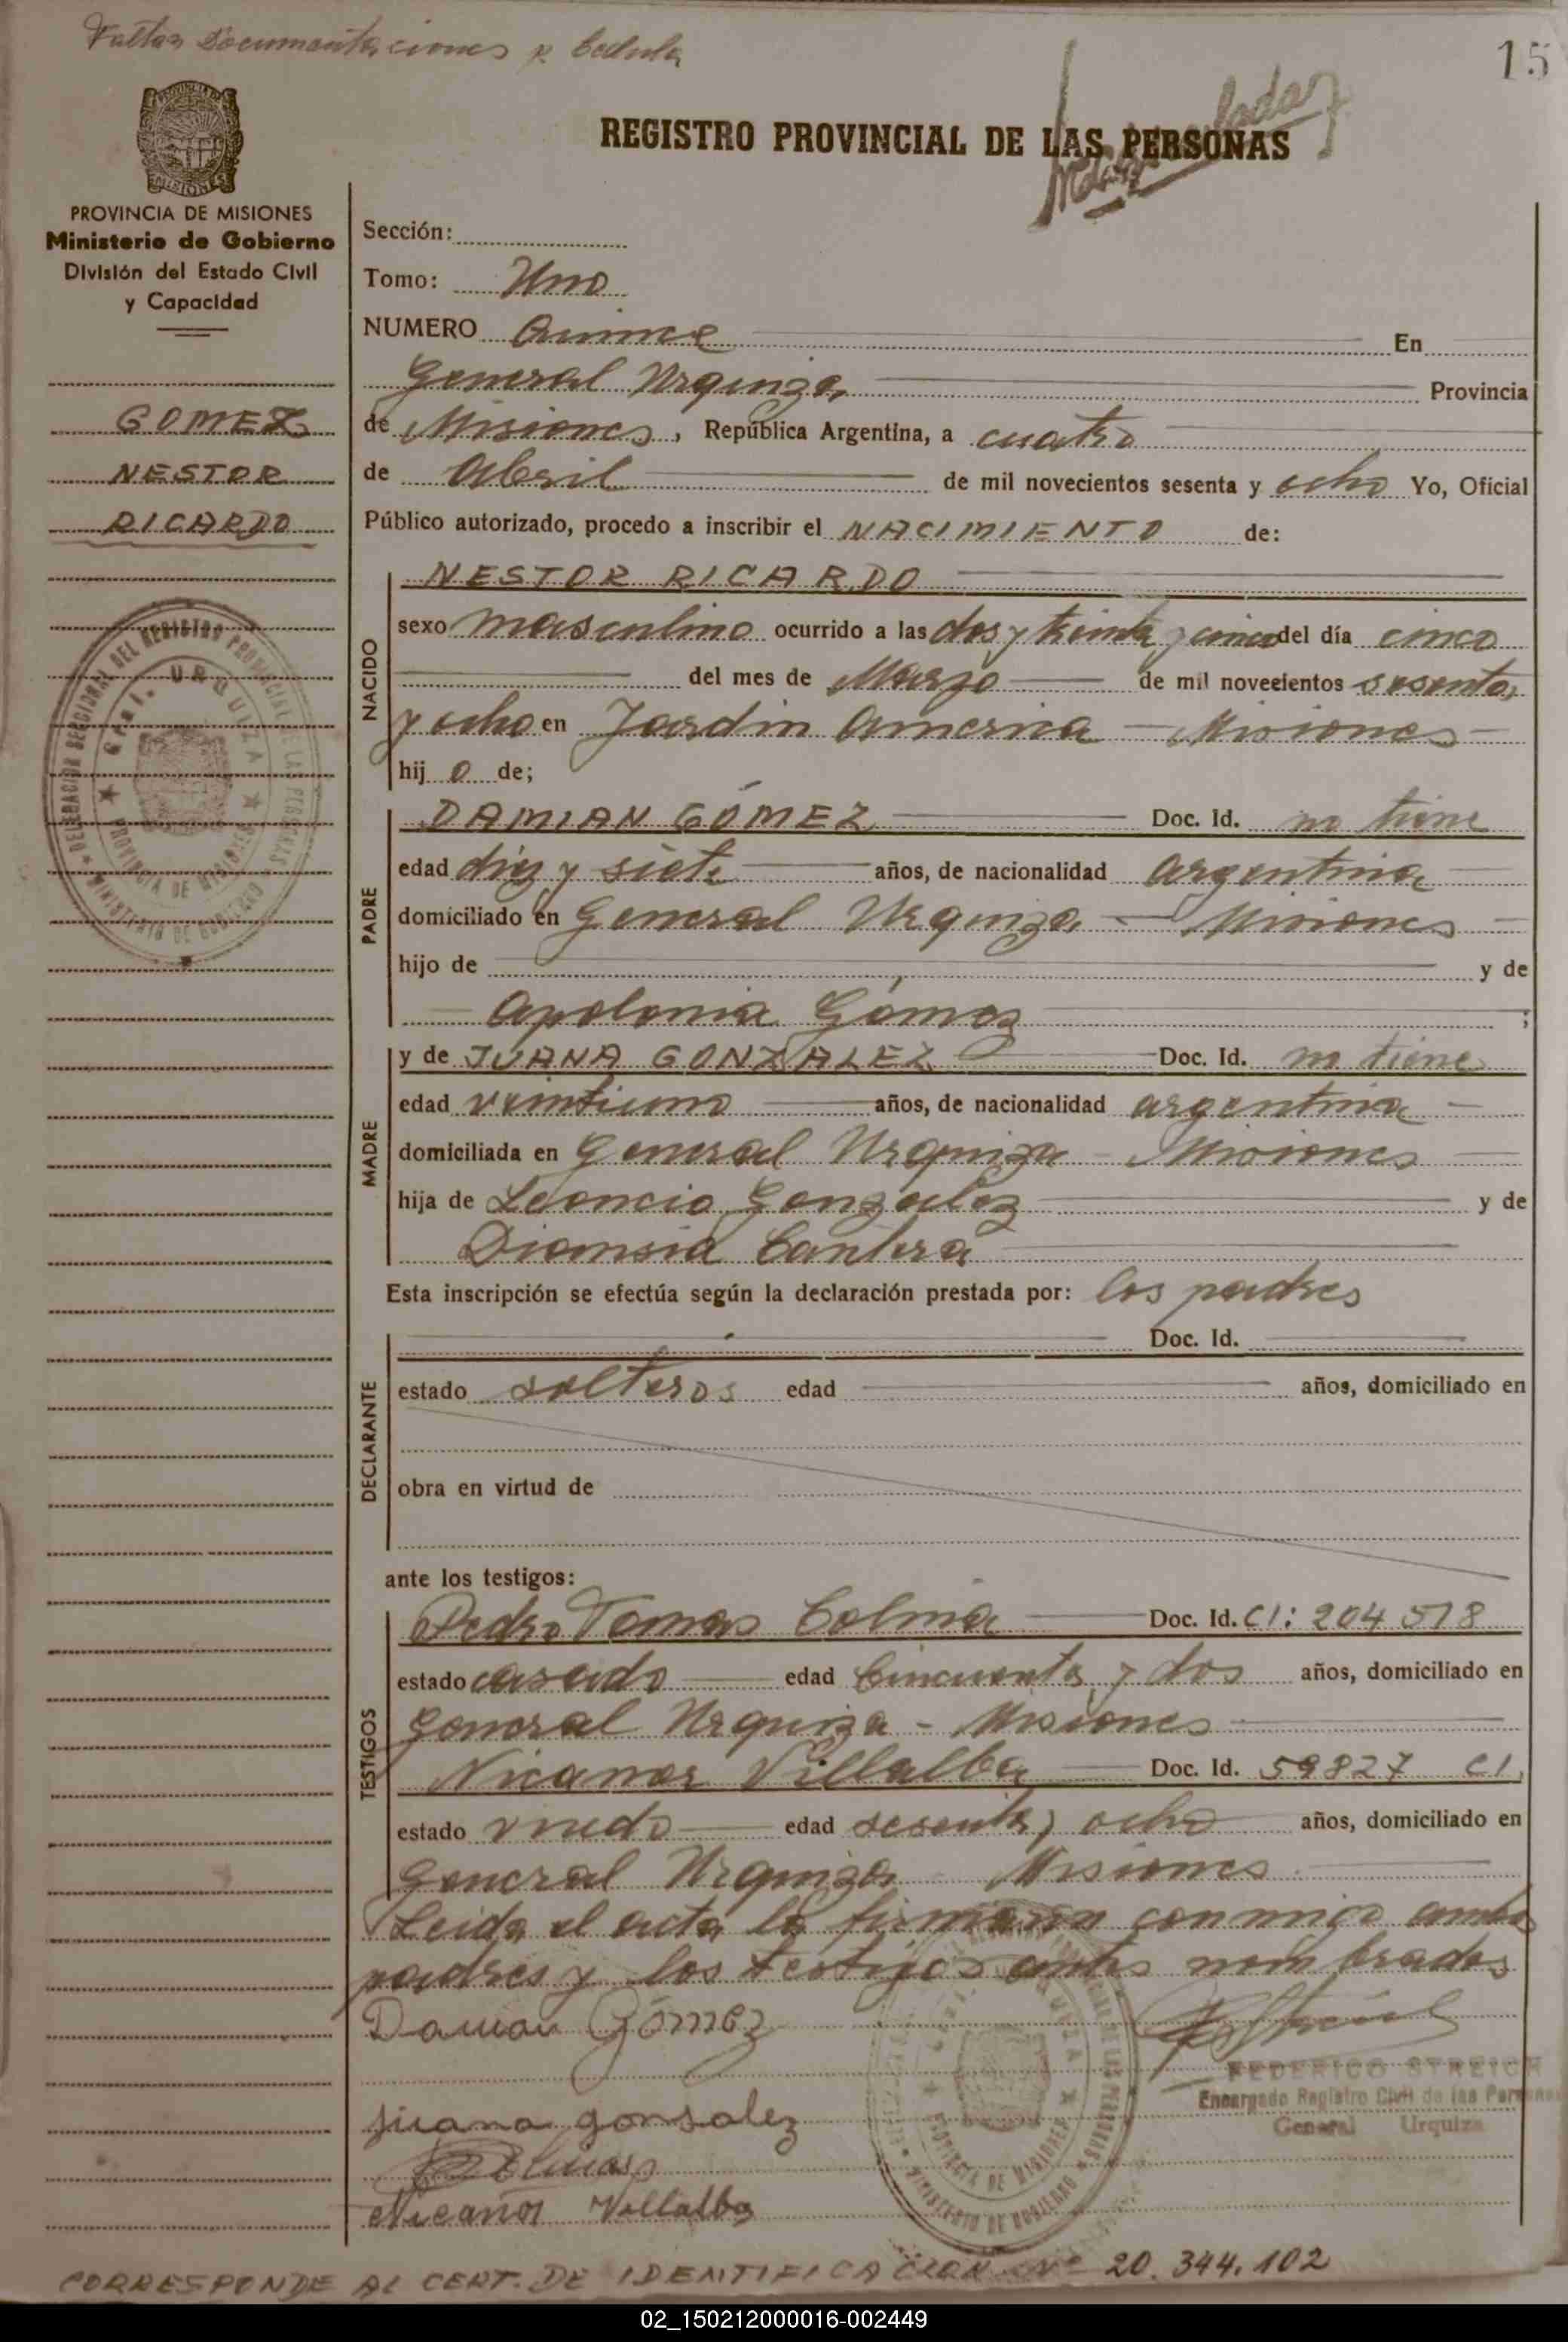 Faltan Documentaciones p. Cedula
15
REGISTRO PROVINCIAL DE LAS PERSONAS
PROVINCIA DE MISIONES
Ministerio de Gobierno
División del Estado Civil
y Capacidad
GOMEZ
NESTOR
RICARDO
Sección:
Tomo: Uno
NUMERO Quince En
General Urquiza, Provincia
de Misiones, República Argentina, a cuatro
de Abril de mil novecientos sesenta y ocho Yo, Oficial
Público autorizado, procedo a inscribir el NACIMIENTO de:
NACIDO
NESTOR RICARDO
sexo masculino ocurrido a las dos y treinta y cinco del día cinco
del mes de Marzo de mil novecientos sesenta
y ocho en Jardin America - Misiones
hij o de;
PADRE
DAMIAN GÓMEZ Doc. Id. no tiene
edad diez y siete años, de nacionalidad argentina
domiciliado en General Urquiza - Misiones
hijo de y de
Apolonia Gómez ;
MADRE
y de JUANA GONZALEZ Doc. Id. no tiene
edad veintiuno años, de nacionalidad argentina
domiciliada en General Urquiza - Misiones
hija de Leoncio González y de
Dionisia Cantera
Esta inscripción se efectúa según la declaración prestada por: los padres
DECLARANTE
Doc. Id.
estado solteros edad años, domiciliado en
obra en virtud de
ante los testigos:
TESTIGOS
Pedro Tomas Colmán Doc. Id. CI: 204 518
estado casado edad Cincuenta y dos años, domiciliado en
General Urquiza - Misiones
Nicanor Villalba Doc. Id. 59827 CI.
estado viudo edad sesenta y ocho años, domiciliado en
General Urquiza - Misiones
Leida el acta la firmaron conmigo ambos
padres y los testigos antes nombrados
Damian Gómez
FEDERICO STREICH
Encargado Registro Civil de las Personas
General Urquiza
Juana gonsalez
Nicanor Villalba
CORRESPONDE AL CERT. DE IDENTIFICACION Nº 20.344.102
02_150212000016-002449